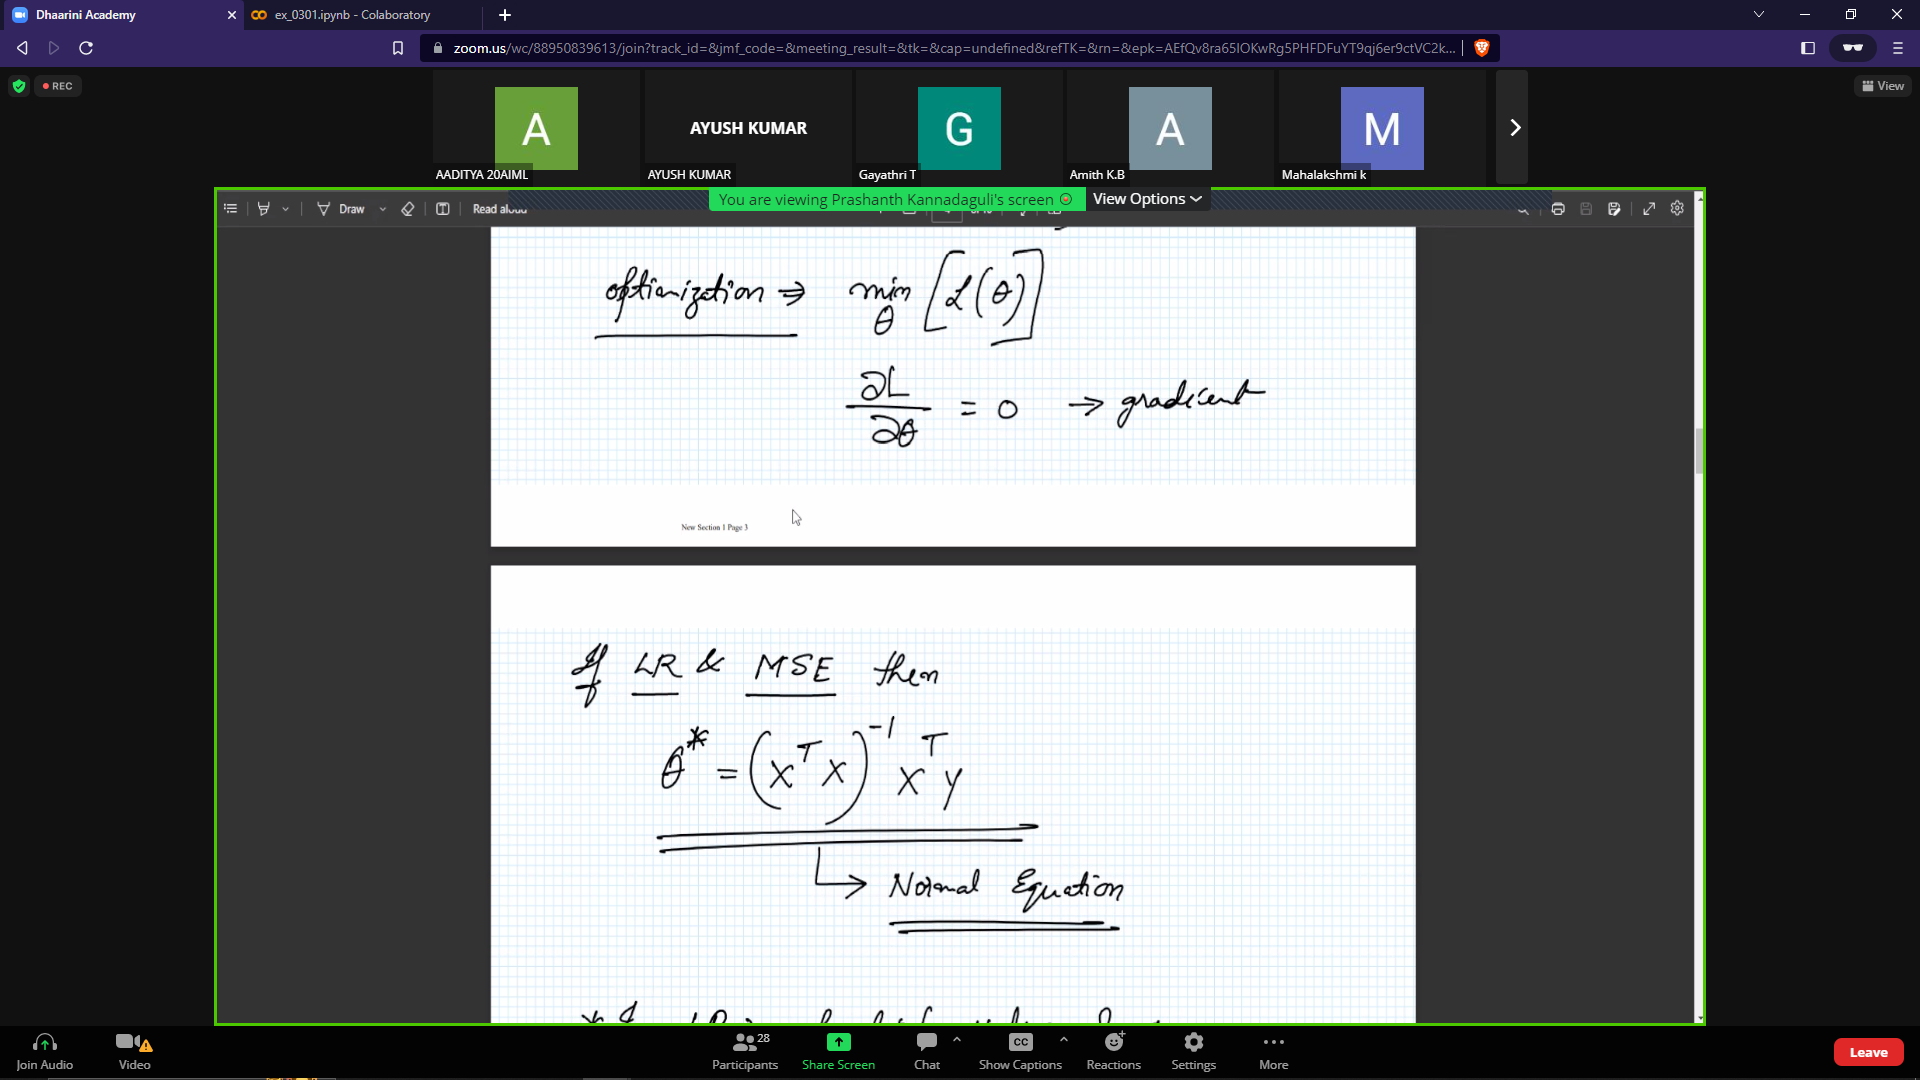 Dhaarini Academy
ex_0301.ipynb - Colaboratory
zoom.us/wc/88950839613/join?track_id=&jmf_code=&meeting_result=&tk=&cap=undefined&refTK=&rn=&epk=AEfQv8ra65IOKwRg5PHFDFuYT9qj6er9ctVC2k...
REC
View
A
AYUSH KUMAR
G
A
M
AADITYA 20AIML
AYUSH KUMAR
Gayathri T
Amith K.B
Mahalakshmi k
You are viewing Prashanth Kannadaguli's screen
View Options
Draw
Read aloud
optimization ⇒ min θ [L(θ)]
∂L/∂θ = 0 → gradient
New Section 1 Page 3
If LR & MSE then
θ* = (XᵀX)⁻¹ Xᵀy
Normal Equation
Join Audio
Video
Participants
28
Share Screen
Chat
CC
Show Captions
Reactions
Settings
More
Leave